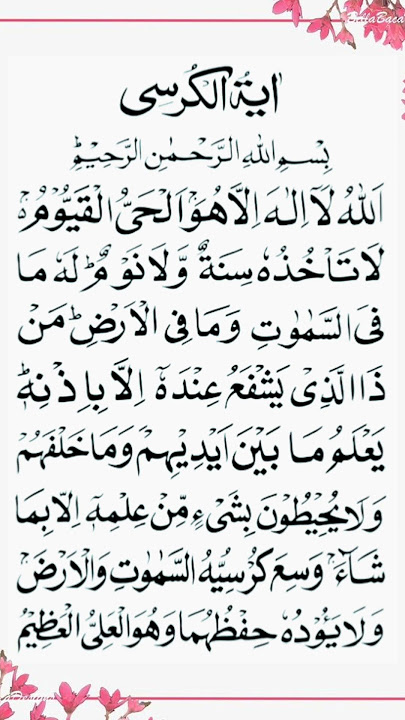 BellaBaca
اٰيةُ الكُرسِى
بِسْمِ اللهِ الرَّحْمٰنِ الرَّحِيْمِؕ
اَللهُ لَآ اِلٰهَ اِلَّا هُوَ ۚ اَلْحَىُّ الْقَيُّوْمُ ۚ
لَا تَاْخُذُهٗ سِنَةٌ وَّلَا نَوْمٌ ؕ لَهٗ مَا
فِى السَّمٰوٰتِ وَمَا فِى الْاَرْضِ ؕ مَنْ
ذَا الَّذِىْ يَشْفَعُ عِنْدَهٗٓ اِلَّا بِاِذْنِهٖ ؕ
يَعْلَمُ مَا بَيْنَ اَيْدِيْهِمْ وَمَا خَلْفَهُمْ ۚ
وَلَا يُحِيْطُوْنَ بِشَىْءٍ مِّنْ عِلْمِهٖٓ اِلَّا بِمَا
شَآءَ ۚ وَسِعَ كُرْسِيُّهُ السَّمٰوٰتِ وَالْاَرْضَ ۚ
وَلَا يَؤُدُهٗ حِفْظُهُمَا وَهُوَ الْعَلِىُّ الْعَظِيْمُ